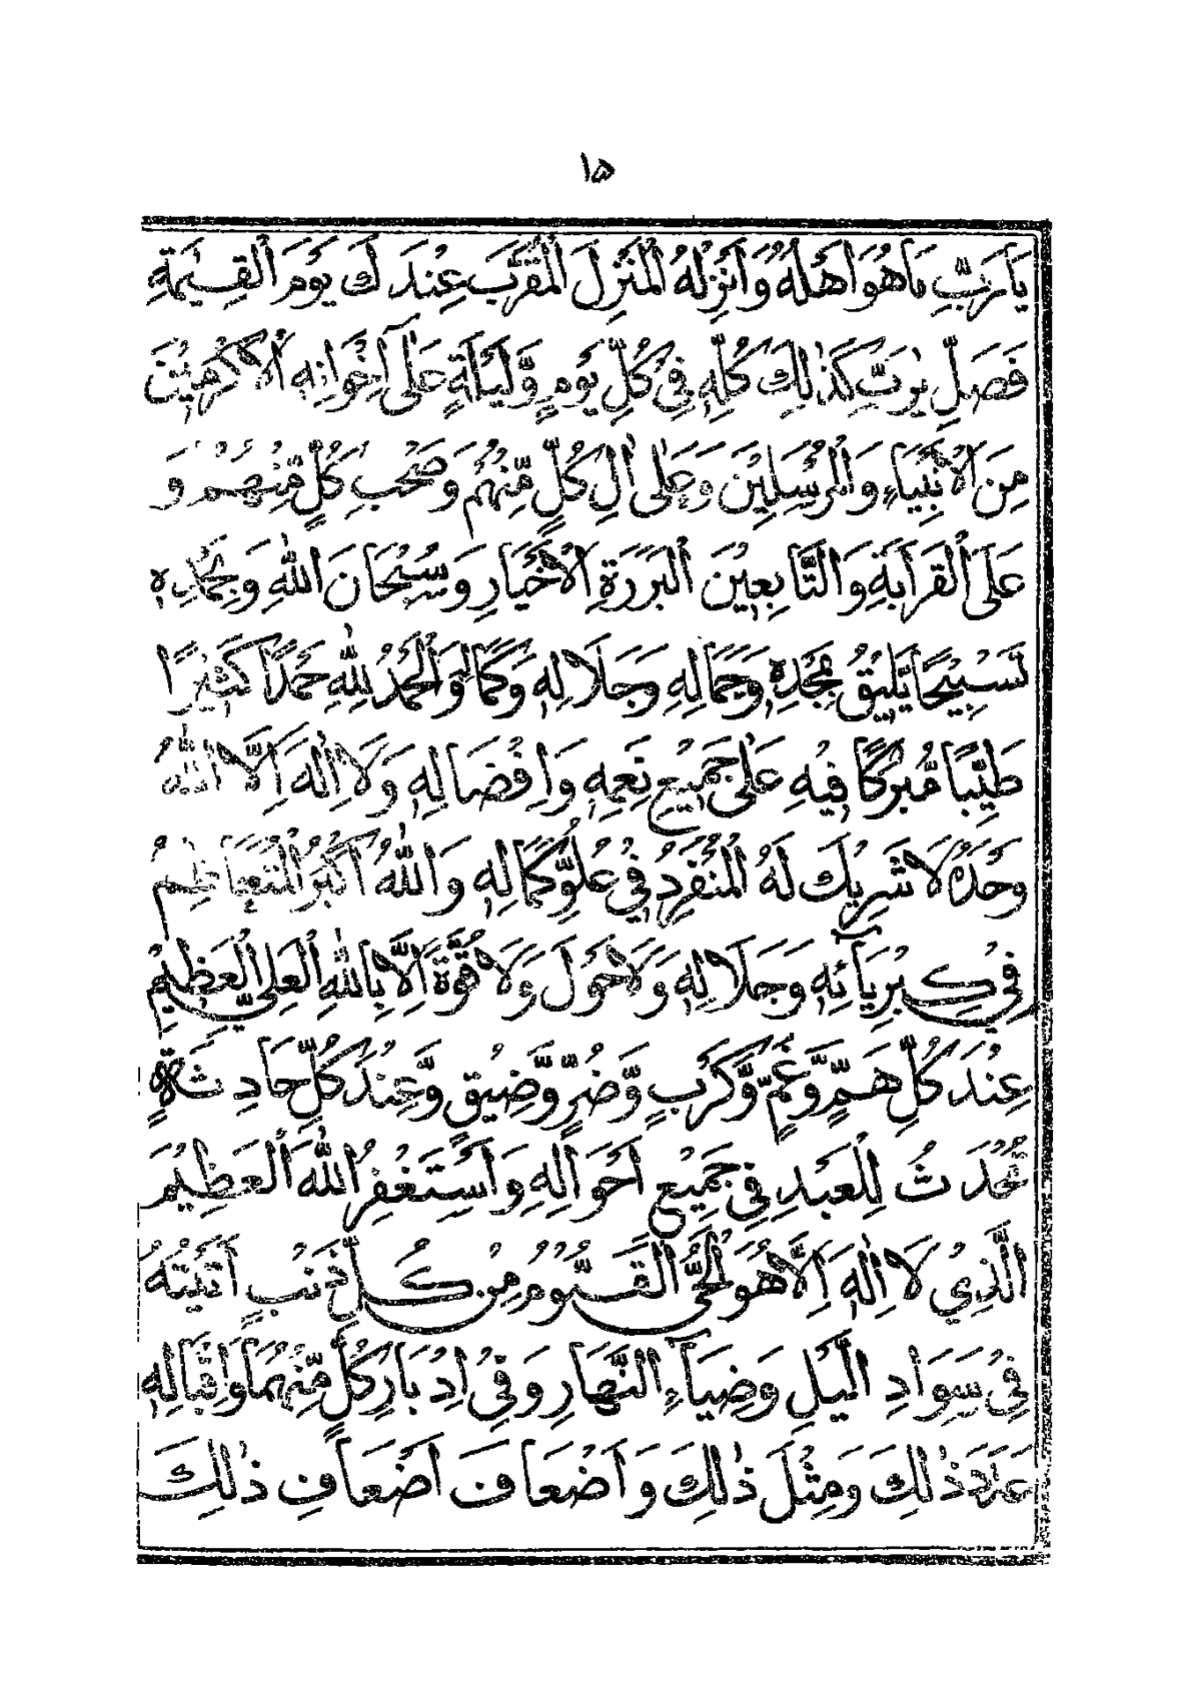 ۱۵
يَا رَبِّ مَا هُوَ اَهْلُهُ وَاَنْزِلْهُ الْمَنْزِلَ الْمُقَرَّبَ عِنْدَكَ يَوْمَ الْقِيٰمَةِ
فَصَلِّ يٰرَبِّ كَذٰلِكَ كُلِّهٖ فِيْ كُلِّ يَوْمٍ وَّلَيْلَةٍ عَلٰٓى اِخْوَانِهِ الْاَكْرَمِيْنَ
مِنَ الْاَنْبِيَاءِ وَالْمُرْسَلِيْنَ وَعَلٰى اٰلِ كُلٍّ مِّنْهُمْ وَصَحْبِ كُلٍّ مِّنْهُمْ وَ
عَلَى الْقَرَابَةِ وَالتَّابِعِيْنَ الْبَرَرَةِ الْاَخْيَارِ وَسُبْحَانَ اللّٰهِ وَبِحَمْدِهٖ
تَسْبِيْحًا يَّلِيْقُ بِمَجْدِهٖ وَجَمَالِهٖ وَجَلَالِهٖ وَكَمَالِهٖ وَالْحَمْدُ لِلّٰهِ حَمْدًا كَثِيْرًا
طَيِّبًا مُّبٰرَكًا فِيْهِ عَلٰى جَمِيْعِ نِعَمِهٖ وَاِفْضَالِهٖ وَلَا اِلٰهَ اِلَّا اللّٰهُ
وَحْدَهُ لَا شَرِيْكَ لَهُ الْمُنْفَرِدُ فِيْ عُلُوِّ كَمَالِهٖ وَاللّٰهُ اَكْبَرُ الْمُتَعَاظِمُ
فِيْ كِبْرِيَآئِهٖ وَجَلَالِهٖ وَلَا حَوْلَ وَلَا قُوَّةَ اِلَّا بِاللّٰهِ الْعَلِيِّ الْعَظِيْمِ
عِنْدَ كُلِّ هَمٍّ وَّغَمٍّ وَّكَرْبٍ وَّضُرٍّ وَّضِيْقٍ وَّعِنْدَ كُلِّ حَادِثَةٍ
تَحْدُثُ لِلْعَبْدِ فِيْ جَمِيْعِ اَحْوَالِهٖ وَاَسْتَغْفِرُ اللّٰهَ الْعَظِيْمَ
الَّذِيْ لَا اِلٰهَ اِلَّا هُوَ الْحَيُّ الْقَيُّوْمُ مِنْ كُلِّ ذَنْبٍ اَتَيْتُهُ
فِيْ سَوَادِ الَّيْلِ وَضِيَآءِ النَّهَارِ وَفِيْ اِدْبَارِ كُلٍّ مِّنْهُمَا وَاِقْبَالِهٖ
عَدَدَ ذٰلِكَ وَمِثْلَ ذٰلِكَ وَاَضْعَافَ اَضْعَافِ ذٰلِكَ